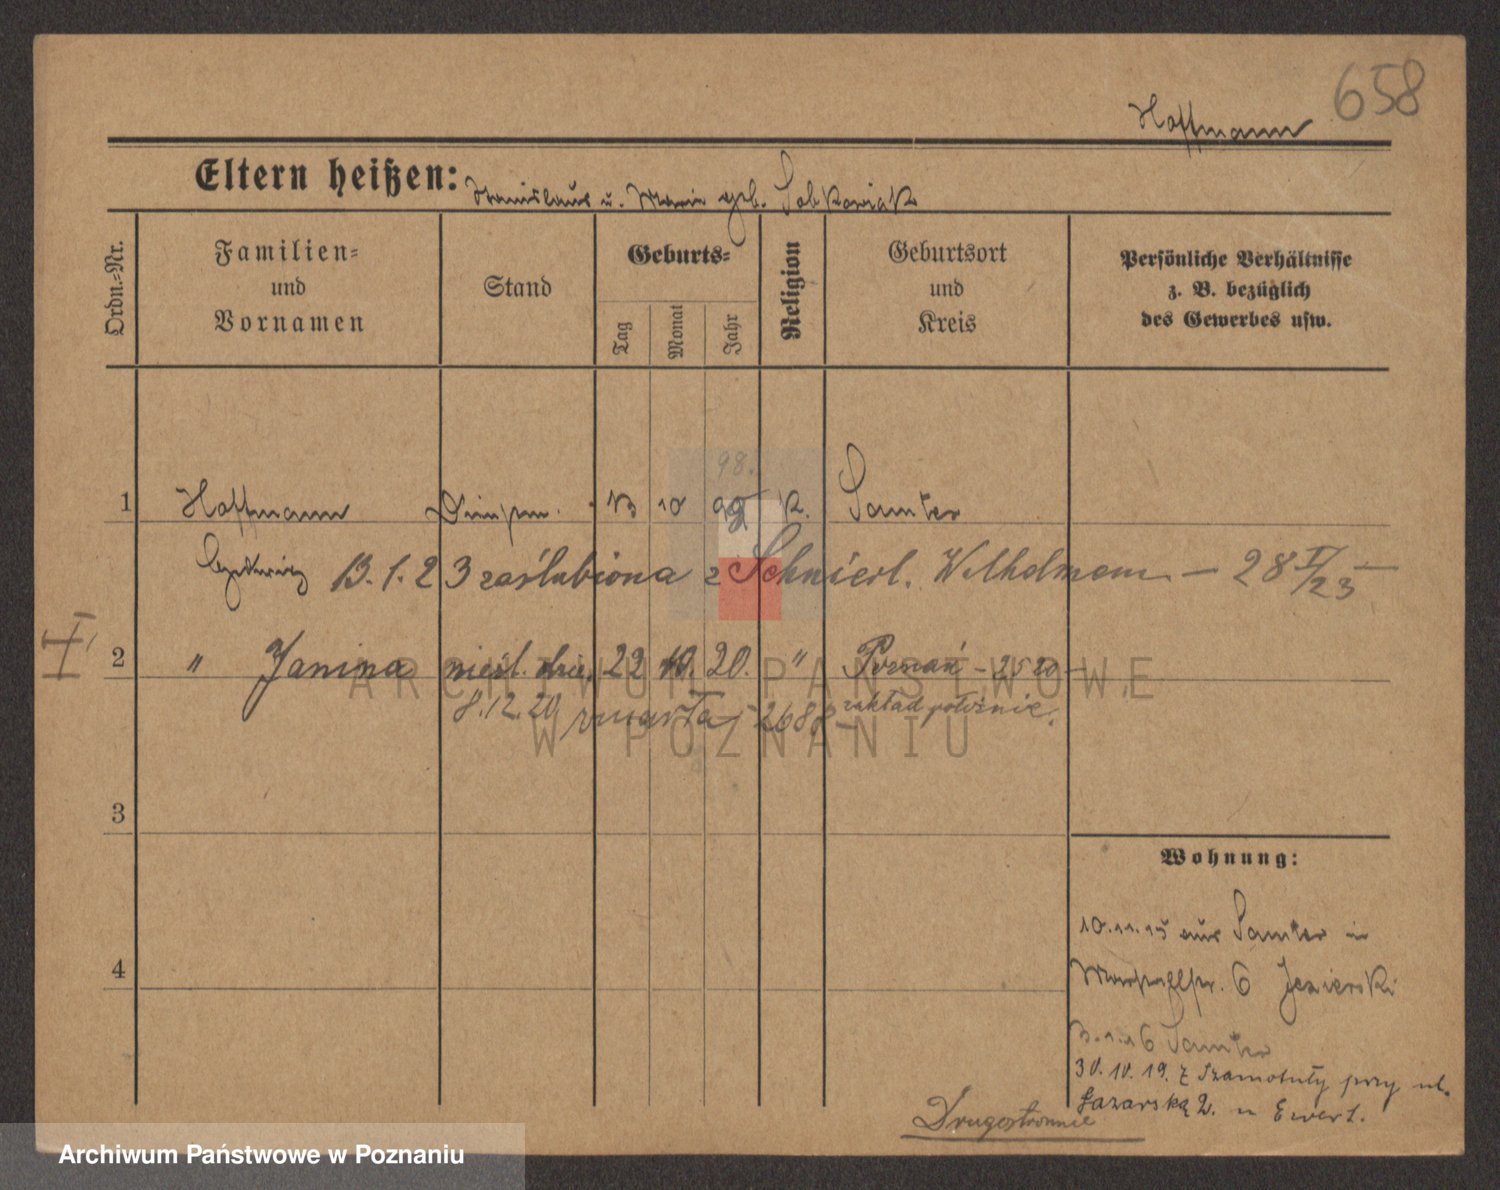 658
Hoffmann
Eltern heißen: Stanislaus u. Marie geb. Sobkowiak
Ordn.=Nr.
Familien=
und
Vornamen
Stand
Geburts=
Tag
Monat
Jahr
Religion
Geburtsort
und
Kreis
Persönliche Verhältnisse
z. B. bezüglich
des Gewerbes usw.
98.
1 Hoffmann 13 10 99 K. Samter
Hedwig 13. 1. 23 zaślubiona z Schnierl. Wilhelmem — 28 I/23 —
I
2 " Janina nieśl. dzie. 22 10. 20. " Poznań - 2520 -
8.12.20 zmarła - 2688 - zakład położnic.
ARCHIWUM PAŃSTWOWE
W POZNANIU
3
4
Wohnung:
10.11.15 aus Samter in
6 Jezierski
3.1.16 Samter
30. 10. 19. z Szamotuły przy ul.
Łazarską 2. u Ewert.
Drugostronnie
Archiwum Państwowe w Poznaniu